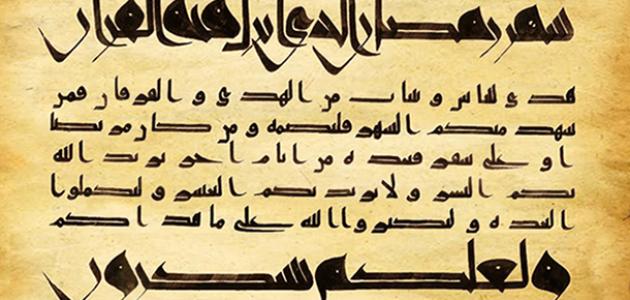 شهر رمضان الذي انزل فيه القران
هدى للناس و بينات من الهدى و الفرقان فمن
شهد منكم الشهر فليصمه و من كان مريضا
او على سفر فعدة من ايام اخر يريد الله
بكم اليسر و لا يريد بكم العسر و لتكملوا
العدة و لتكبروا الله على ما هداكم
ولعلكم تشكرون